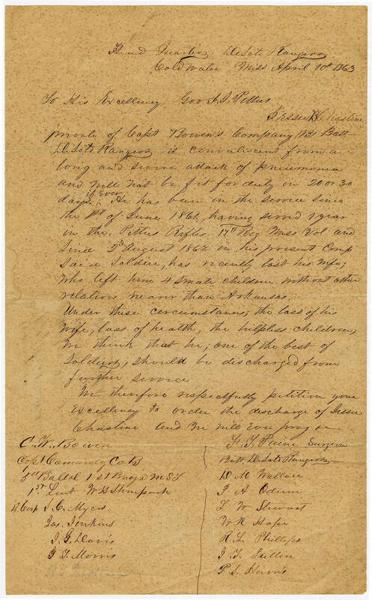 Head Quarters DeSoto Rangers
Cold Water Miss April 10th 1863
To His Excellency Gov J.J. Pettus
Jesse
private of Capt Bowen's Company 1st Batt
DeSoto Rangers is convalescent from a
long and severe attack of pneumonia
and will not be fit for duty in 20 or 30
days, if ever. He has been in the service since
the 1st of June 1861, having served 1 year
in the Pettus Rifles 17th Reg Miss Vol and
since 5th August 1862 in his present Comp
Said Soldier, has recently lost his wife,
who left him 4 small children without other
relation, nearer than Arkansas.
Under these circumstances, the loss of his
Wife, loss of health, the helpless children,
We think that he, one of the best of
Soldiers, should be discharged from
further service
We therefore respectfully petition your
Excellency to order the discharge of Jesse
Chastine and we will ever pray &c
C. H. Bowen
Capt Comanding Co
Battal 1st M S T
1st Lieut W
Corp J. C. Myers
Jas. Jenkins
J. G. Davis
Morris
Paine Surgeon
Batt DeSoto Rangers
D. M. Wallace
J. A. Odum
L. W. Stewart
W. R.
R. L. Phillips
J. T.
P. S. Harris